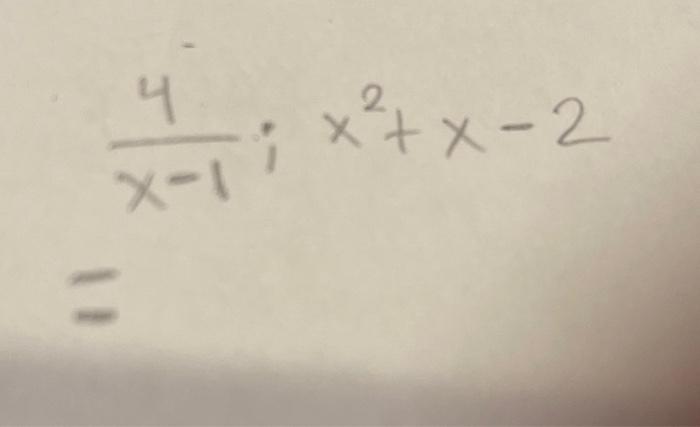 4/(x-1); x²+x-2
=